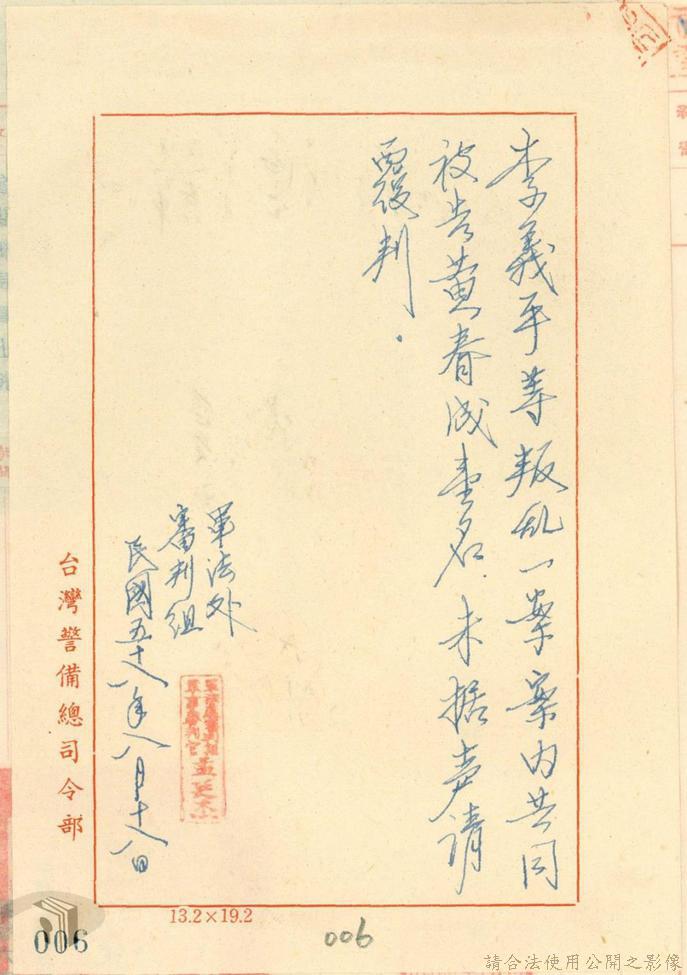 李義平等叛乱一案案内共同
被告黄春成壹名.未据声请
覆判.
軍法处
審判組
民國五十八年八月十八日
台灣警備總司令部
13.2×19.2
006
006
請合法使用公開之影像